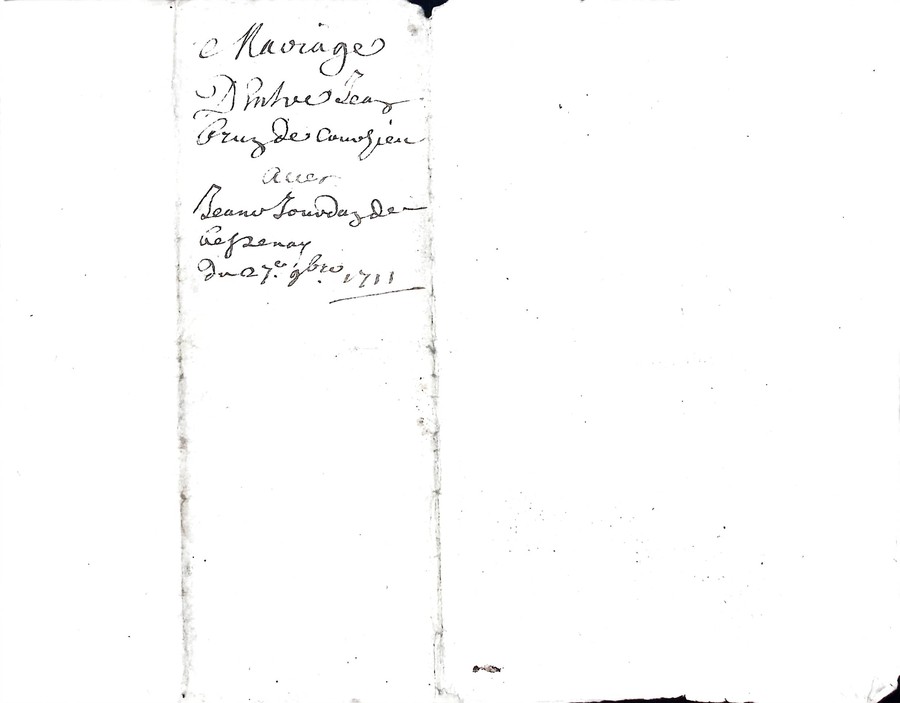 Mariage
D'Entre Jean
Brun de Courzieu
avec
Jeane Jourdan de
Bessenay
du 27.e 9bre 1711